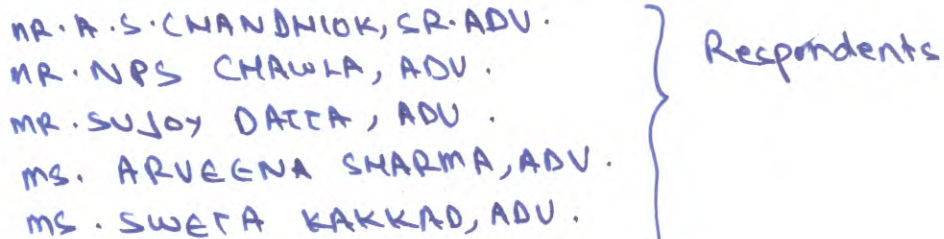 MR. A.S. CHANDHIOK, SR. ADV.
MR. NPS CHAWLA, ADV.
MR. SUJOY DATTA, ADV.
MS. ARVEENA SHARMA, ADV.
MS. SWETA KAKKAD, ADV.
Respondents